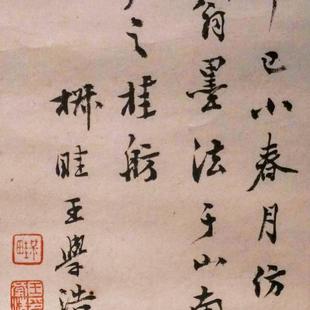 巳小春月仿
翁墨法于山南
之桂舫
椒畦王學浩